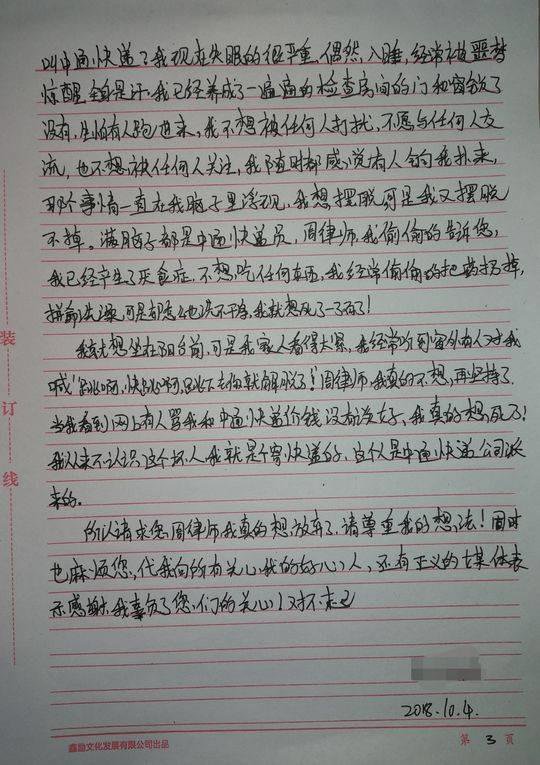 叫中通快递了我现在失眠的很严重,偶然入睡,经常被噩梦
惊醒,全身是汗,我已经养成了一遍遍的检查房间的门和窗锁了
没有,生怕有人跑进来,我不想被任何人打扰,不愿与任何人交
流,也不想被任何人关注,我随时都感觉有人向我扑来,
那个事情一直在我脑子里浮现,我想摆脱可是我又摆脱
不掉。满脑子都是中通快递员,周律师,我偷偷的告诉您,
我已经产生了厌食症,不想吃任何东西,我经常偷偷的把药扔掉,
拼命洗澡,可是却怎么也洗不干净,我就想死了一了百了!
我就想坐在阳台前,可是我家人看得太紧,我经常听到窗外有人对我
喊"跳啊,快跳啊,跳下去你就解脱了!周律师,我真的不想再坚持了
当我看到网上有人骂我和中通快递价钱没有谈好,我真的想死了!
我从来不认识这个坏人,我就是个寄快递的,这个人是中通快递公司派
来的。
所以请求您,周律师,我真的想放弃了,请尊重我的想法!同时
也麻烦您,代我向所有关心我的好心人,还有正义的媒体表
示感谢,我辜负了您们的关心!对不起
2018.10.4.
鑫励文化发展有限公司出品
第 3 页
装
订
线